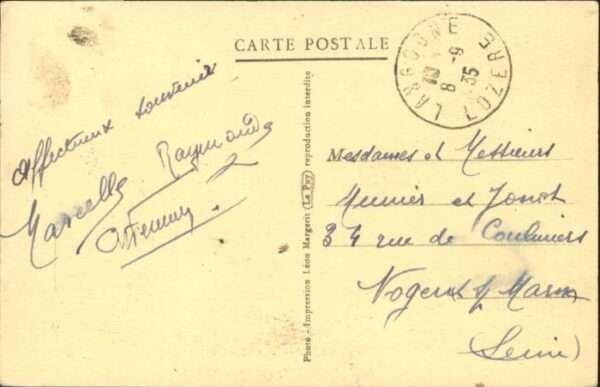 CARTE POSTALE
LANGOGNE
LOZERE
8 -9
35
Affectueux souvenir
Marcelle Raymonde
Photo - Impression Léon Margerit (Le Puy) reproduction interdite
Mesdames et Messieurs
Munier et Jonot
34 rue de Coulmiers
Nogent s/ Marne
(Seine)